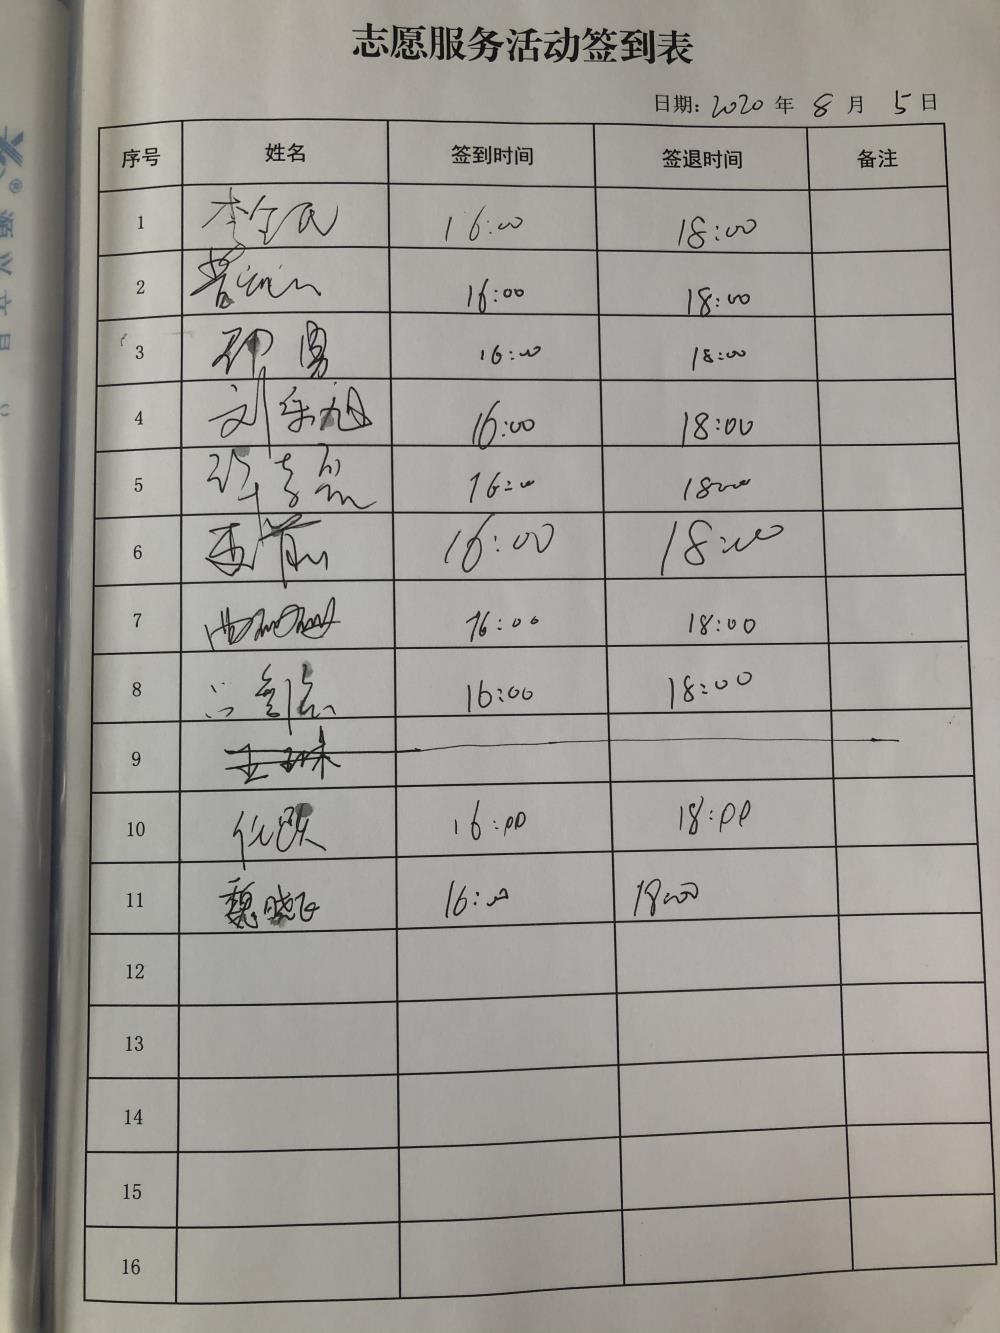 志愿服务活动签到表
日期: 2020 年 8 月 5 日
序号 姓名 签到时间 签退时间 备注
1 李全民 16:00 18:00
2 16:00 18:00
3 邵勇 16:00 18:00
4 刘乐旭 16:00 18:00
5 16:00 18:00
6 16:00 18:00
7 16:00 18:00
8 16:00 18:00
9 王珠
10 任欧 16:00 18:00
11 魏晓飞 16:00 18:00
12
13
14
15
16